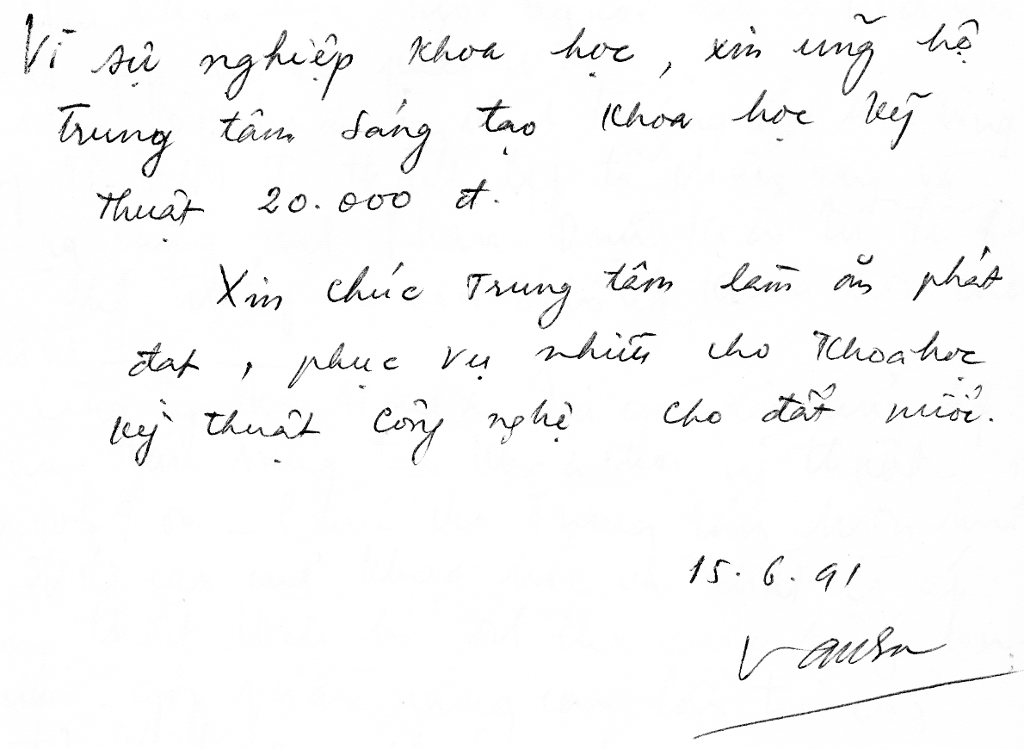 Vì sự nghiệp khoa học, xin ủng hộ
Trung tâm sáng tạo khoa học kỹ
thuật 20.000 đ.
Xin chúc Trung tâm làm ăn phát
đạt, phục vụ nhiều cho khoa học
kỹ thuật công nghệ cho đất nước.
15.6.91